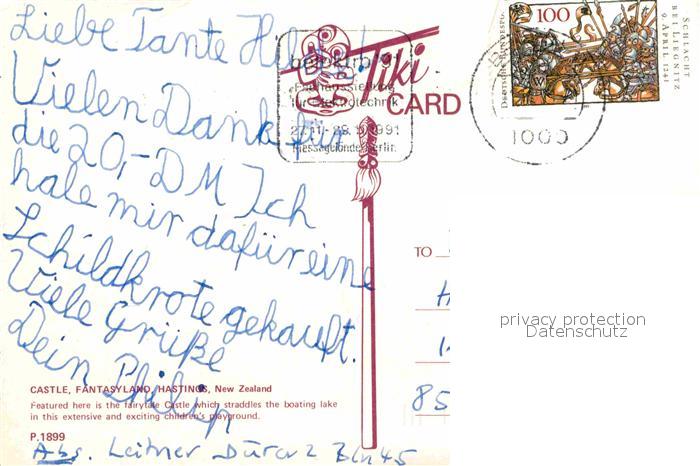 Liebe Tante
Vielen Dank für
die 20,- DM Ich
habe mir dafür eine
Schildkröte gekauft.
Viele Grüße
Dein Philip
CASTLE, FANTASYLAND, HASTINGS, New Zealand
Featured here is the fairytale Castle which straddles the boating lake
in this extensive and exciting children's playground.
P.1899
Abs. Leitner Bln 45
Tiki
CARD
Fachausstellung
für Elektrotechnik
1991
Messegelände Berlin
1000
100
DEUTSCHE BUNDESPOST
SCHLACHT
BEI LIEGNITZ
9. APRIL 1241
TO
85
privacy protection
Datenschutz